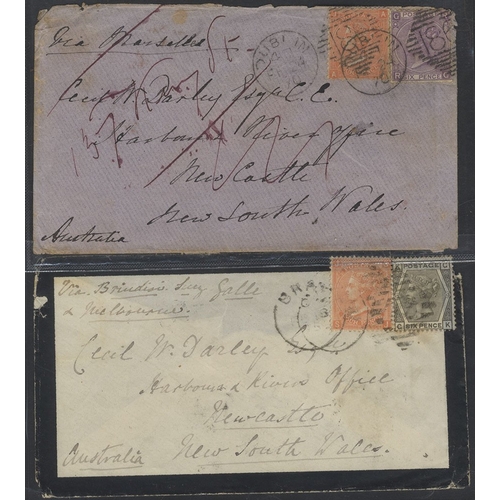 Via Marseilles
DUBLIN
186
POSTAGE
R SIX PENCE G
Cecil W. Darley Esqre C.E.
Harbour & River Office
New Castle
New South Wales.
Australia
Via Brindisi Suez Galle
& Melbourne.
BRAY
POSTAGE
G SIX PENCE K
Cecil W. Darley Esq
Harbours & Rivers Office
Newcastle
New South Wales.
Australia